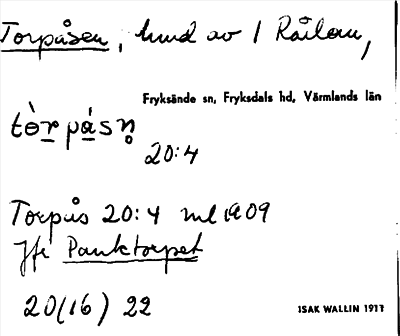 Torpåsen, hmd av 1 Råilom,
Fryksände sn, Fryksdals hd, Värmlands län
tòrpásn̥
20:4
Torpås 20:4 ml 1909
Jfr Panktorpet
20(16) 22
ISAK WALLIN 1917